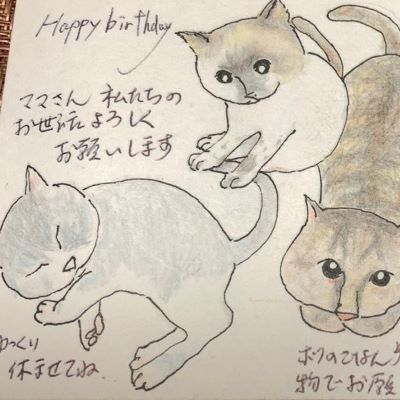 Happy birthday
ママさん 私たちの
お世話よろしく
お願いします
ゆっくり
休ませてね.
ボクのごはん
物でお願